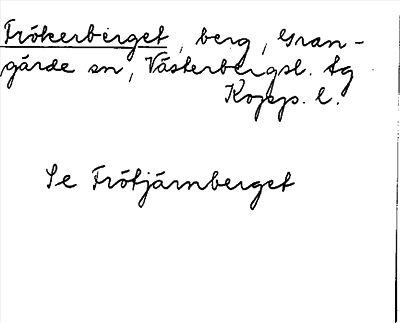 Frökerberget, berg, Gran-
gärde sn, Västerbergsl. tg
Kopp. l.
Se Frötjärnberget